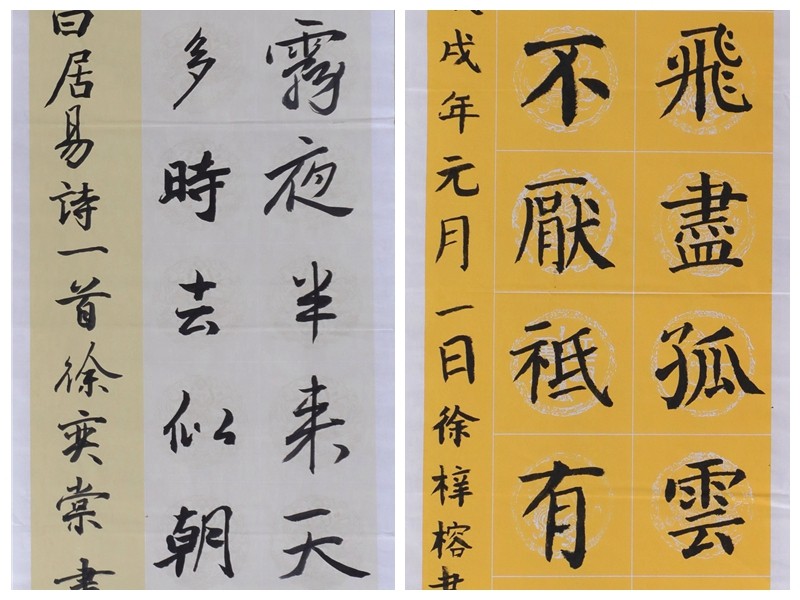 霧夜半来天
多時去似朝
白居易詩一首徐奕棠書
飛盡孤雲
不厭祗有
戌年元月一日徐梓榕書